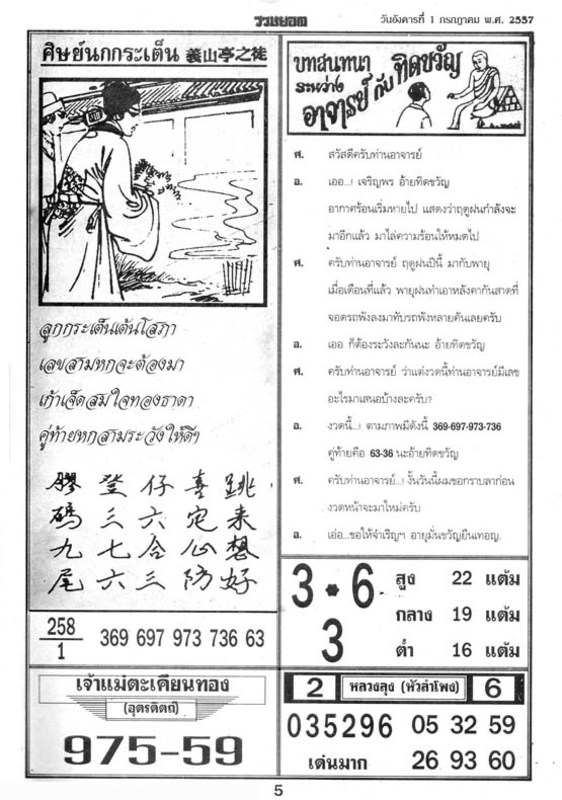 รวมยอด
วันอังคารที่ 1 กรกฎาคม พ.ศ. 2557
ศิษย์นกกระเต็น 義山亭之徒
ลูกกระเต็นเต้นโสภา
เลขสามหกจะต้องมา
เก้าเจ็ดสมใจทองธาดา
คู่ท้ายหกสามระวังให้ดีฯ
膠 登 仔 喜 跳
碼 三 六 定 来
九 七 合 心 想
尾 六 三 防 好
258
1
369 697 973 736 63
เจ้าแม่ตะเคียนทอง
(อุตรดิตถ์)
975-59
บทสนทนา
ระหว่าง
อาจารย์ กับ ทิดขวัญ
ศ. สวัสดีครับท่านอาจารย์
อ. เออ...! เจริญพร อ้ายทิดขวัญ
อากาศร้อนเริ่มหายไป แสดงว่าฤดูฝนกำลังจะ
มาอีกแล้ว มาไล่ความร้อนให้หมดไป
ศ. ครับท่านอาจารย์ ฤดูฝนปีนี้ มากับพายุ
เมื่อเดือนที่แล้ว พายุฝนทำเอาหลังคากันสาดที่
จอดรถพังลงมาทับรถพังหลายคันเลยครับ
อ. เออ ก็ต้องระวังละกันนะ อ้ายทิดขวัญ
ศ. ครับท่านอาจารย์ ว่าแต่งวดนี้ท่านอาจารย์มีเลข
อะไรมาเสนอบ้างละครับ?
อ. งวดนี้...! ตามภาพมีดังนี้ 369-697-973-736
คู่ท้ายคือ 63-36 นะอ้ายทิดขวัญ
ศ. ครับท่านอาจารย์...! งั้นวันนี้ผมขอกราบลาก่อน
งวดหน้าจะมาใหม่ครับ
อ. เอ่อ...ขอให้จำเริญๆ อายุมั่นขวัญยืนเทอญ.
3 * 6
3
สูง 22 แต้ม
กลาง 19 แต้ม
ต่ำ 16 แต้ม
2 หลวงลุง (หัวลำโพง) 6
035296 05 32 59
เด่นมาก 26 93 60
5